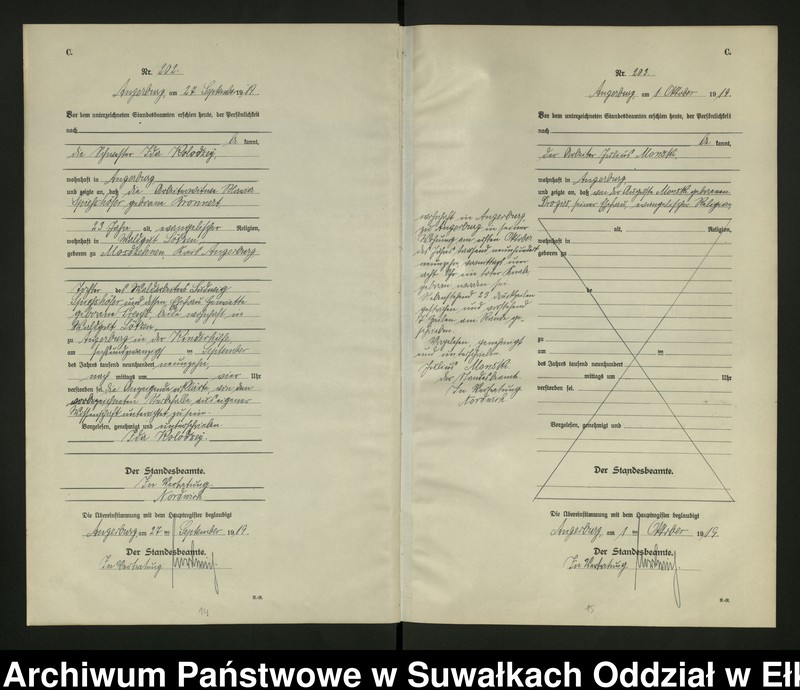 C.
Nr. 202.
Angerburg, am 27 September 1919.
Vor dem unterzeichneten Standesbeamten erschien heute, der Persönlichkeit
nach
be kannt,
die Schwester Ida Kolodzej,
wohnhaft in Angerburg
und zeigte an, daß die Arbeiterwitwe Maria
geborene
23 Jahre alt, evangelischer Religion,
wohnhaft in Waldgut Lötzen,
geboren zu Kreis Angerburg
Tochter des Waldarbeiters Ludwig
und dessen Ehefrau Henriette
geborene beide wohnhaft in
Waldgut Lötzen,
zu Angerburg in der
am sechsundzwanzigsten September
des Jahres tausend neunhundert neunzehn,
nach mittags um vier Uhr
verstorben sei. Die Anzeigende erklärte, von dem
vorbezeichneten Sterbefalle aus eigener
Wissenschaft unterrichtet zu sein.
Vorgelesen, genehmigt und unterschrieben
Ida Kolodzej.
Der Standesbeamte.
In Vertretung.
Nordwich
Die Übereinstimmung mit dem Hauptregister beglaubigt
Angerburg am 27 ten September 1919.
Der Standesbeamte.
In Vertretung
K.-R.
14
C.
Nr. 203.
Angerburg am 1 Oktober 1919.
Vor dem unterzeichneten Standesbeamten erschien heute, der Persönlichkeit
nach
be kannt,
der Arbeiter Julius Monski,
wohnhaft in Angerburg
und zeigte an, daß von der Auguste Monski geborenen
seiner Ehefrau, evangelischer Religion
alt, Religion,
wohnhaft in
geboren zu
zu
am ten
des Jahres tausend neunhundert
mittags um Uhr
verstorben sei.
Vorgelesen, genehmigt und
Der Standesbeamte.
Die Übereinstimmung mit dem Hauptregister beglaubigt
Angerburg am 1 ten Oktober 1919.
Der Standesbeamte.
In Vertretung
K.-R.
15
wohnhaft in Angerburg
zu Angerburg in seiner
Wohnung am ersten Oktober
des Jahres tausend neunhundert
neunzehn vormittags um
acht Uhr ein totes Kind
geboren worden sei
Vorstehend 23 Druckzeilen
gestrichen und
Zeilen am Rande ge-
schrieben.
Vorgelesen genehmigt
und unterschrieben
Julius Monski
der Standesbeamte.
In Vertretung
Nordwich
Archiwum Państwowe w Suwałkach Oddział w Ełk